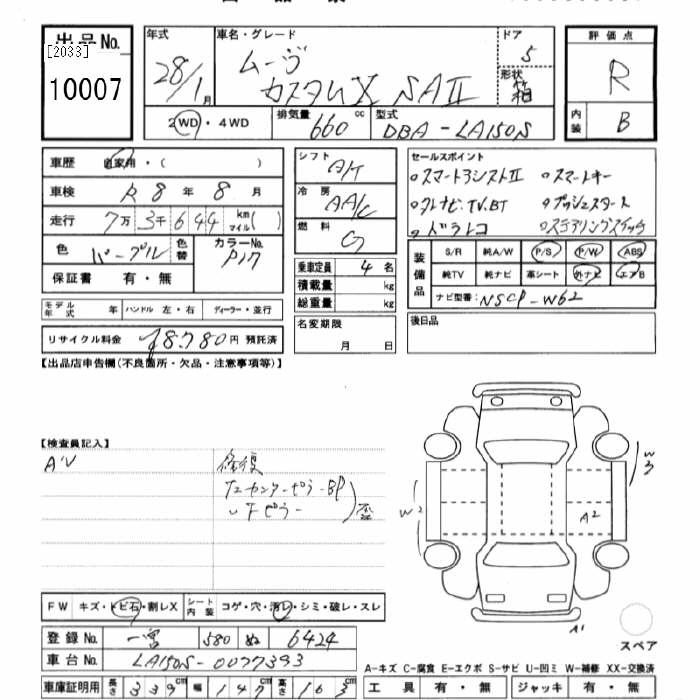 出品No. [2033] 10007
年式 28/1月
車名・グレード ムーヴ カスタムX SAII
ドア 5
形状 箱
2WD・4WD
排気量 660cc
型式 DBA-LA150S
評価点 R
内装 B
車歴 自家用・( )
車検 R8年8月
走行 7万3千644km マイル( )
色 パープル 色替 カラーNo. P17
保証書 有・無
モデル年式 年 ハンドル 左・右 ディーラー・並行
リサイクル料金 ¥8,780円 預託済
シフト A/T
冷房 AA/C
燃料 G
乗車定員 4名
積載量 kg
総重量 kg
名変期限 月 日
セールスポイント
○スマートアシストII ○スマートキー
○ナビ.TV.BT ○プッシュスタート
○ドラレコ ○ステアリングスイッチ
装備品 S/R 純A/W P/S P/W ABS
純TV 純ナビ 革シート 外ナビ エアB
ナビ型番: NSCP-W62
後日品
【出品店申告欄(不良箇所・欠品・注意事項等)】
【検査員記入】
A'V
修復
センターピラーBP
Fピラー
W2
W3
A2
A1
スペア
FW キズ・トビ石・割レX シート内装 コゲ・穴・汚レ・シミ・破レ・スレ
登録No. 一宮 580 ぬ 6424
車台No. LA150S-0077393
車庫証明用 長さ 339cm 幅 147cm 高さ 163cm
A-キズ C-腐食 E-エクボ S-サビ U-凹ミ W-補修 XX-交換済
工具 有・無 ジャッキ 有・無